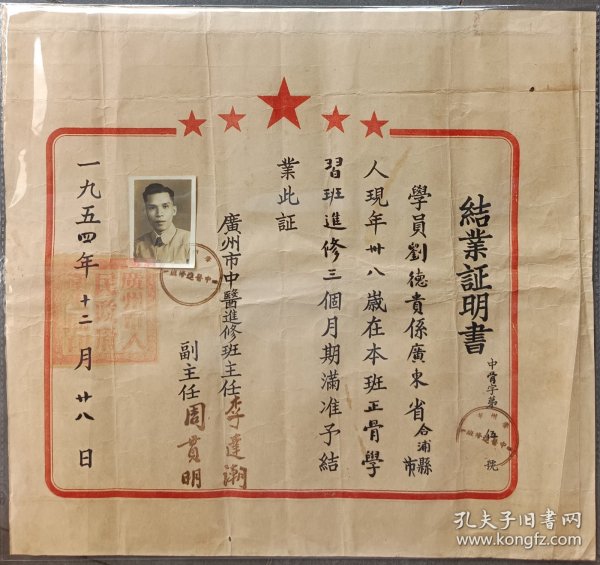 結業証明書
中骨字第伍號
學員劉德貴係廣東省合浦縣市
人現年卅八歲在本班正骨學
習班進修三個月期滿准予結
業此証
廣州市中醫進修班主任李達潮
副主任周貫明
一九五四年十二月廿八日
孔夫子旧书网
www.kongfz.com